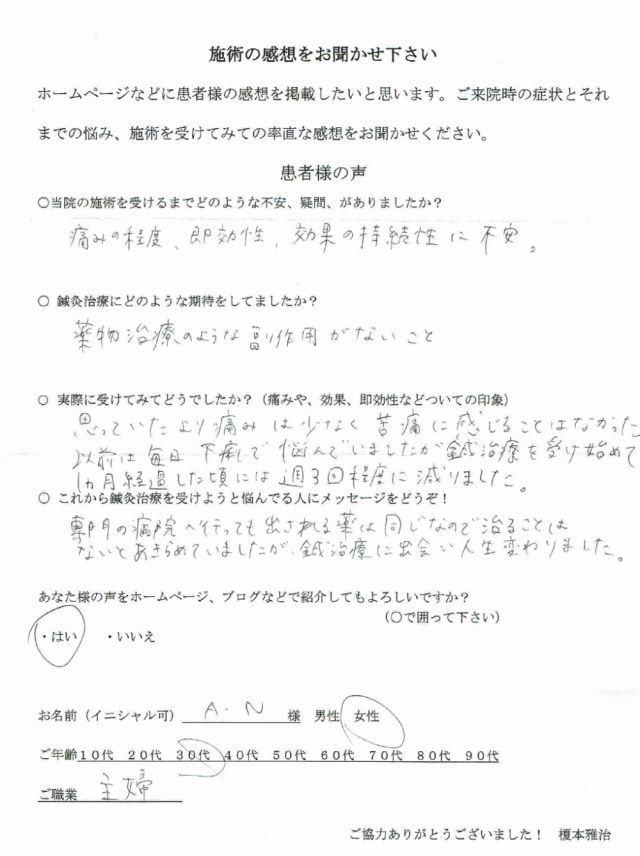 施術の感想をお聞かせ下さい
ホームページなどに患者様の感想を掲載したいと思います。ご来院時の症状とそれ
までの悩み、施術を受けてみての率直な感想をお聞かせください。
患者様の声
○当院の施術を受けるまでどのような不安、疑問、がありましたか？
痛みの程度、即効性、効果の持続性に不安。
○ 鍼灸治療にどのような期待をしてましたか？
薬物治療のような副作用がないこと
○ 実際に受けてみてどうでしたか？（痛みや、効果、即効性などついての印象）
思っていたより痛みは少なく苦痛に感じることはなかった
以前は毎日下痢で悩んでいましたが鍼治療を受け始めて
1ヵ月経過した頃には週3回程度に減りました。
○ これから鍼灸治療を受けようと悩んでる人にメッセージをどうぞ！
専門の病院へ行っても出される薬は同じなので治ることは
ないとあきらめていましたが、鍼治療に出会い人生変わりました。
あなた様の声をホームページ、ブログなどで紹介してもよろしいですか？
（○で囲って下さい）
・はい ・いいえ
お名前（イニシャル可） A.N 様 男性 女性
ご年齢 10代 20代 30代 40代 50代 60代 70代 80代 90代
ご職業 主婦
ご協力ありがとうございました！ 榎本雅治